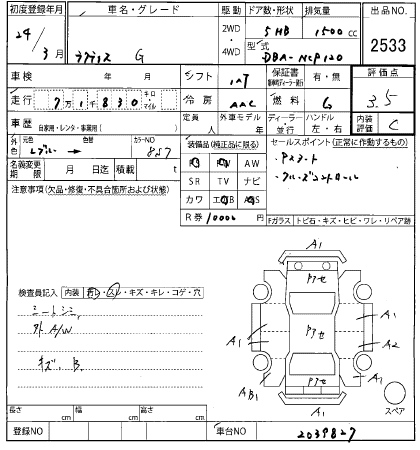 初度登録年月 車名・グレード 駆動 ドア数・形状 排気量 出品NO
24/3月 ラクティス G 2WD・4WD 5HB 1500cc 2533
型式 DBA-NCP120
車検 年 月 シフト IAT 保証書 有・無 評価点
走行 7万1千830キロ・マイル 冷房 AAC 燃料 G 3.5
車歴 自家用・レンタ・事業用( ) 定員 人 外車モデル 年 ディーラー・並行 ハンドル 左・右 内装評価 C
外色 元色 色替 カラーNO
レブルー → 8S7
名義変更期限 月 日迄 積載 t
装備品(純正品に限る)
PS PW AW
SR TV ナビ
カワ エアB ABS
R券 10000円
セールスポイント(正常に作動するもの)
・Pスタート
・クルーズコントロール
注意事項(欠品・修復・不具合箇所および状態)
Fガラス トビ石・キズ・ヒビ・ワレ・リペア跡
検査員記入 内装 汚レ・スレ・キズ・キレ・コゲ・穴
シートシミ
外A/W
キズ、B
A1
アセ
アセ
アセ
A1
A1
A2
AB1
A1
A1
スペア
長さ cm 幅 cm 高さ cm
登録NO 車台NO 2039827